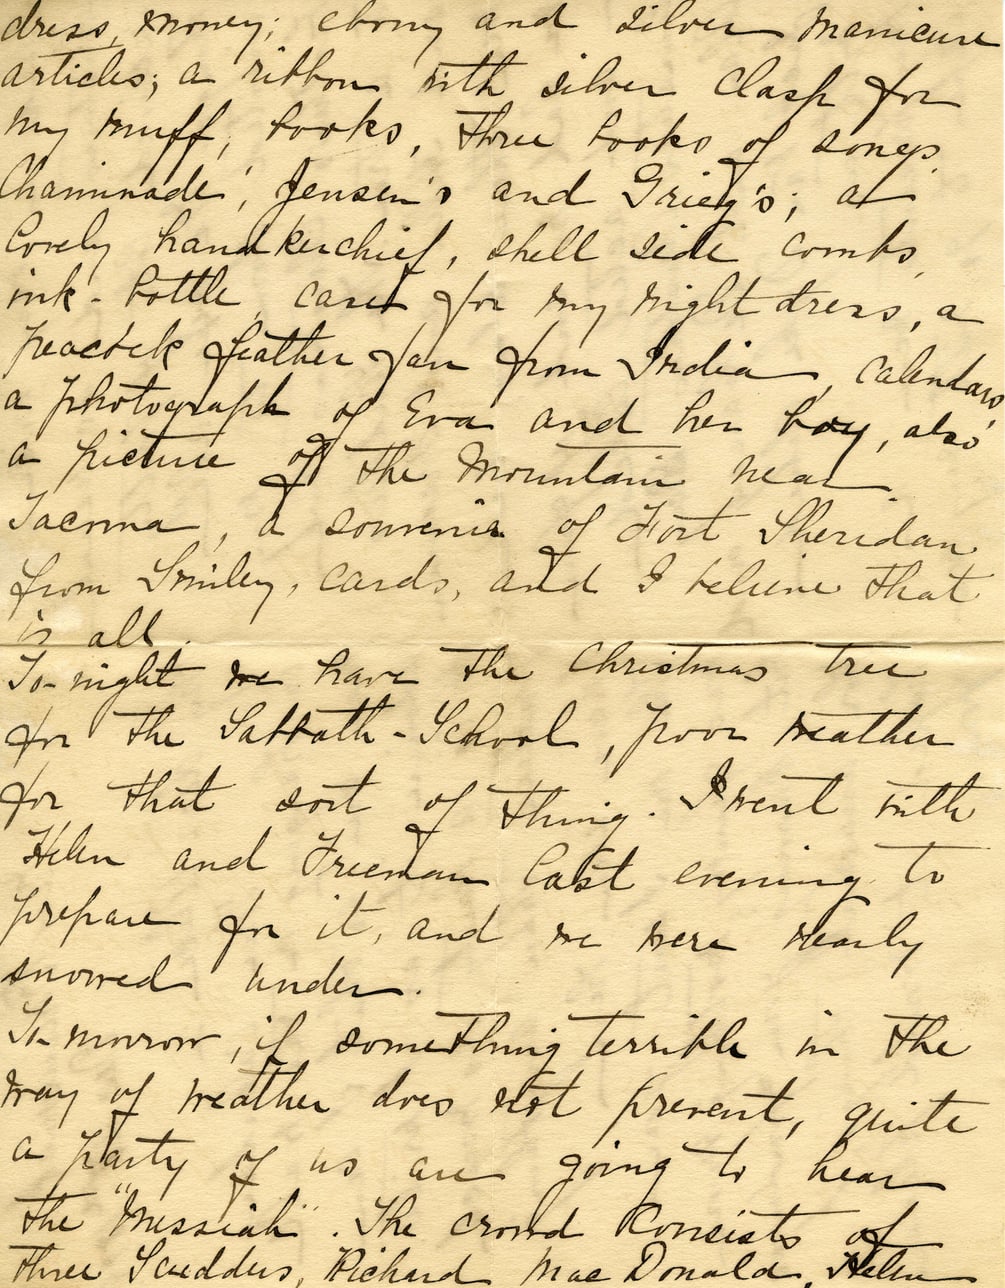 dress, money; ebony and silver manicure
articles; a ribbon with silver clasp for
my muff, books, three books of songs
Chaminade', Jensen's and Grieg's; a
lovely handkerchief, shell side combs,
ink-bottle, case for my night dress, a
peacock feather fan from India, calendars,
a photograph of Eva and her boy, also
a picture of the Mountain near
Tacoma, a souvenir of Fort Sheridan
from Smiley, cards, and I believe that
is all.
To-night we have the Christmas tree
for the Sabbath-School, poor weather
for that sort of thing. I went with
Helen and Freeman last evening to
prepare for it, and we were nearly
snowed under.
To-morrow, if something terrible in the
way of weather does not prevent, quite
a party of us are going to hear
the "Messiah". The crowd consists of
three Scudders, Richard MacDonald, Helen